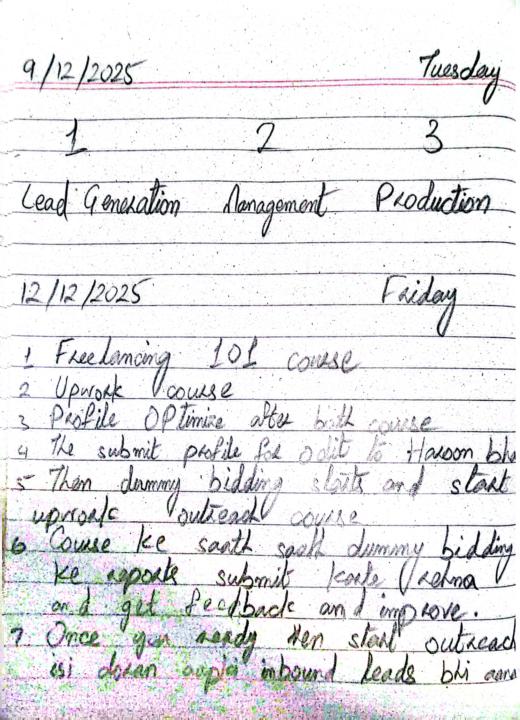 9/12/2025 Tuesday
1 2 3
Lead Generation Management Production
12/12/2025 Friday
1 Freelancing 101 course
2 Upwork course
3 Profile OPtimize after both course
4 The submit profile for odit to Haroon bh
5 Then dummy bidding starts and start
upwork outreach course
6 Course ke saath saath dummy bidding
ke reports submit karte rehna
and get feedback and improve.
7 Once you ready then start outreach
isi doran inbound leads bhi aana